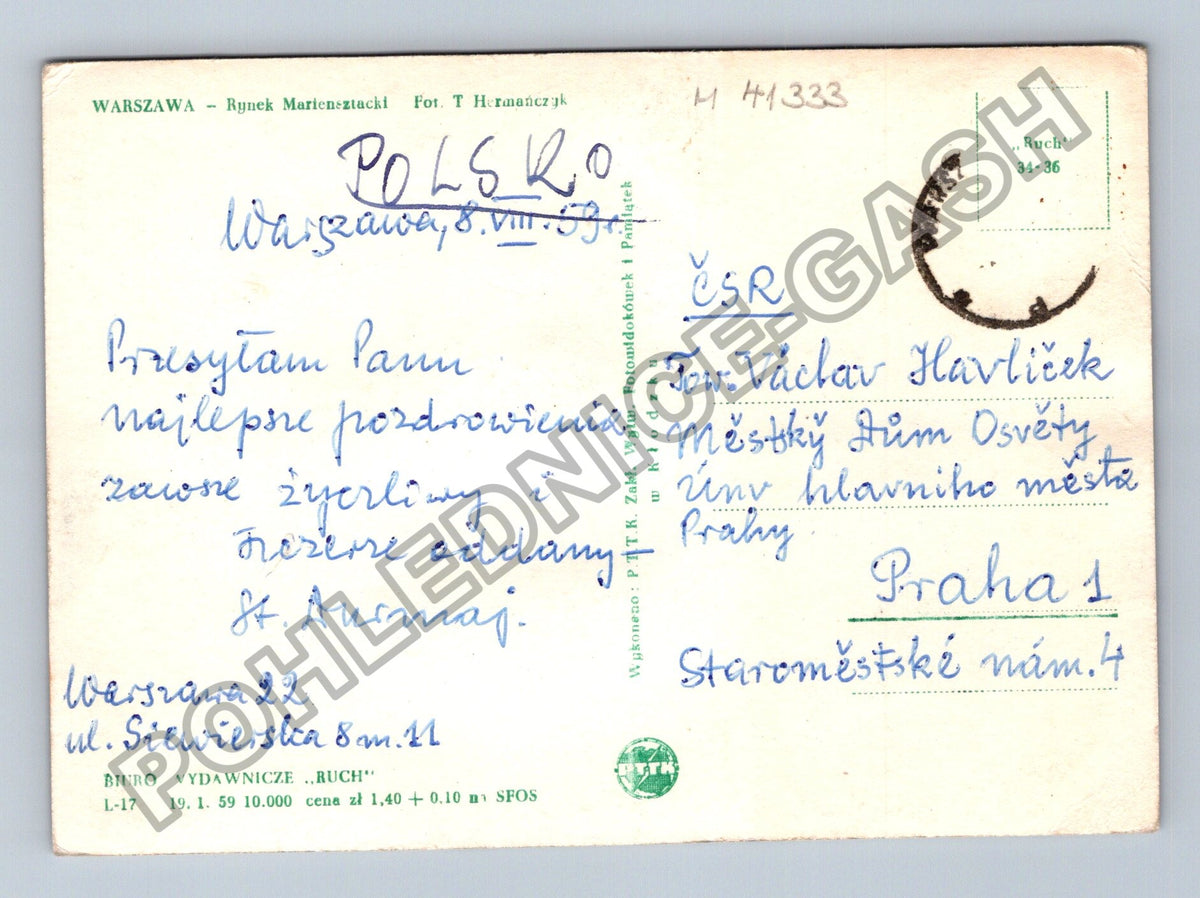 WARSZAWA – Rynek Mariensztacki Fot. T Hermańczyk
M 41333
„Ruch"
34-36
POLSKO
Warszawa, 8.VIII.59r.
Przesyłam Panu
najlepsze pozdrowienia
zawsze życzliwy i
szczerze oddany –
St.
Warszawa 22
ul. Siewierska 8 m. 11
BIURO WYDAWNICZE „RUCH"
L-17 19. 1. 59 10.000 cena zł 1,40 + 0.10 na SFOS
Wykonano: P.T.T.K. Zakł. Wytw. Fotowidokówek i Pamiątek
w Kłodzku
PTTK
ČSR
Tow. Václav Havlíček
Městský Dům Osvěty
Únv hlavniho města
Prahy
Praha 1
Staroměstské nám. 4
POHLEDNICE-GASH